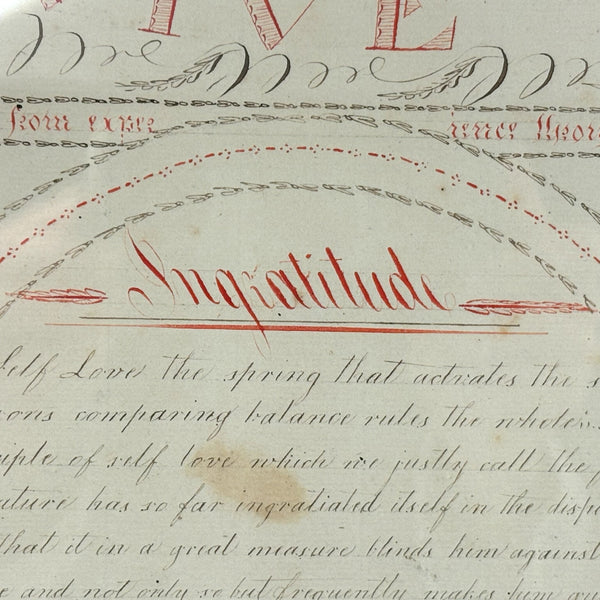 IVE
from expe ience Upon
Ingratitude
Self Love the spring that activates the s
ons comparing balance rules the whole
iple of self love which we justly call the f
ature has so far ingratiated itself in the dispo
that it in a great measure blinds him against
e and not only so but frequently makes him